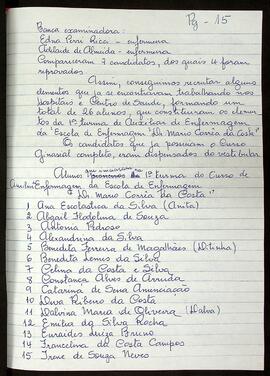 Pg - 15
Banca examinadora:
Edna Perri Ricci - enfermeira
Adelaide de Almeida - enfermeira
Compareceram 7 candidatos, dos quais 4 foram
reprovados.
Assim, conseguimos recrutar alguns
elementos que já se encontravam trabalhando nos
hospitais e Centro de Saúde, formando um
total de 26 alunos, que constituíram os elemen-
tos da 1ª turma de Auxiliar de Enfermagem,
da "Escola de Enfermagem "Dr Mario Corrêa da Costa".
Os candidatos que já possuíam o Curso
Ginasial completo, eram dispensados do vestibular
Alunos que 1ª turma do Curso de
Enfermagem da Escola de Enfermagem
"Dr Mario Corrêa da Costa"
1 Ana Escolastica da Silva (Anita)
2 Abgail Ildolina de Souza
3 Antonia Pedroso
4 Alexandrina da Silva
5 Benedita Ferreira de Magalhães (Ditinha)
6 Benedita Lemes da Silva
7 Celina da Costa e Silva
8 Constança Alves de Arruda
9 Catarina de Sena Anunciação
10 Diva Ribeiro da Costa
11 Dalvina Maria de Oliveira (Dalva)
12 Emilia da Silva Rocha
13 Euraides Luiza Bruno
14 Francelina da Costa Campos
15 Irene de Souza Neves